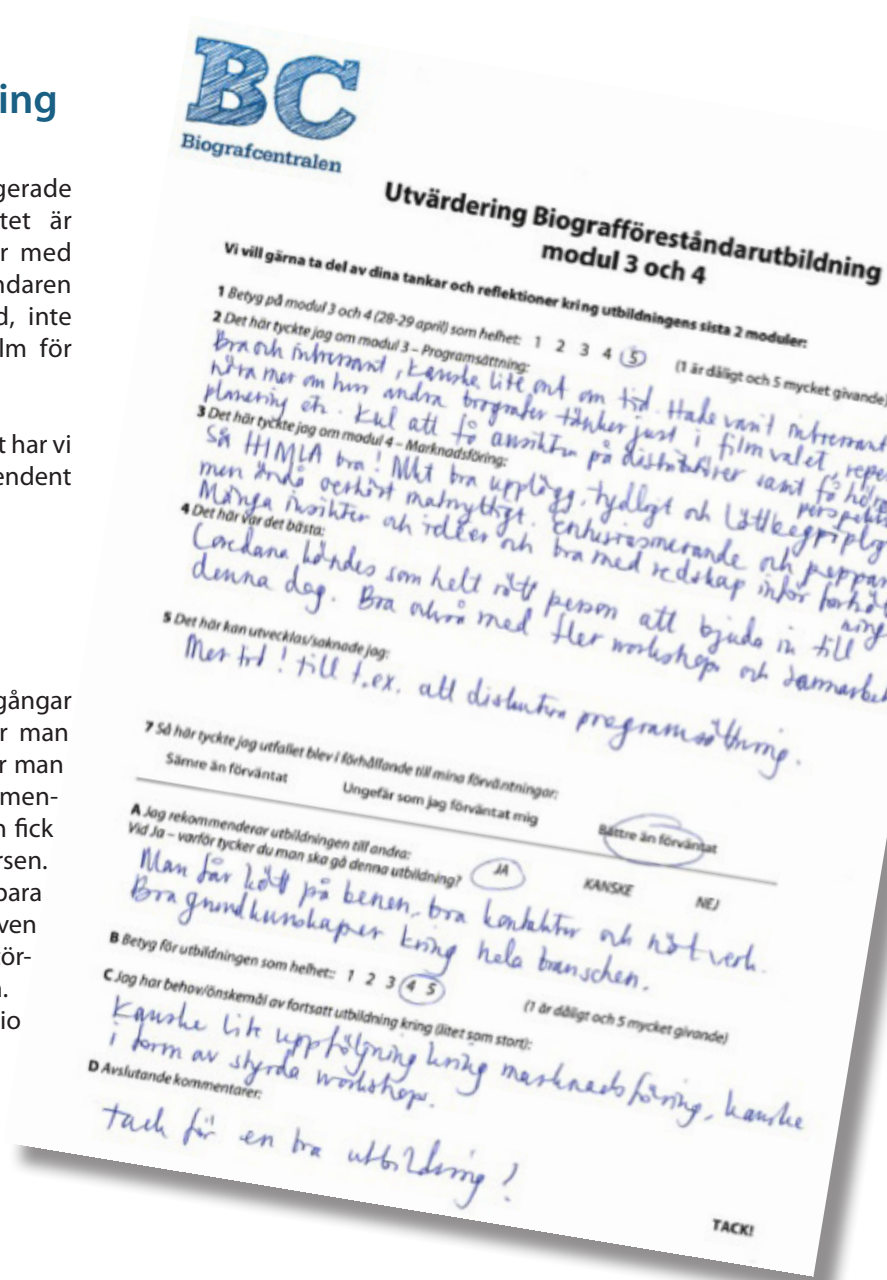 ing
gerade
tet är
r med
ndaren
d, inte
lm för
t har vi
endent
gångar
r man
r man
men-
n fick
rsen.
bara
ven
ör-
.
io
BC
Biografcentralen
Utvärdering Biografföreståndarutbildning
modul 3 och 4
Vi vill gärna ta del av dina tankar och reflektioner kring utbildningens sista 2 moduler:
1 Betyg på modul 3 och 4 (28-29 april) som helhet: 1 2 3 4 5 (1 är dåligt och 5 mycket givande)
2 Det här tyckte jag om modul 3 – Programsättning:
Bra och intressant, kanske lite ont om tid. Hade varit intressant
höra mer om hur andra biografer tänker just i filmvalet, reper
planering etc. Kul att få ansikten på distributörer samt få
perspektiv
3 Det här tyckte jag om modul 4 – Marknadsföring:
Så HIMLA bra! Mkt bra upplägg, tydligt och lättbegripligt
men ändå oerhört matnyttigt. Enthusiasmerande och peppan
Många insikter och idéer och bra med redskap inför
4 Det här var det bästa:
kändes som helt rätt person att bjuda in till
denna dag. Bra också med fler workshops och samarbet
5 Det här kan utvecklas/saknade jag:
Mer tid! till t.ex. att diskutera programsättning.
7 Så här tyckte jag utfallet blev i förhållande till mina förväntningar:
Sämre än förväntat Ungefär som jag förväntat mig Bättre än förväntat
A Jag rekommenderar utbildningen till andra: JA KANSKE NEJ
Vid Ja – varför tycker du man ska gå denna utbildning?
Man får kött på benen, bra kontakter och nätverk.
Bra grundkunskaper kring hela branschen.
B Betyg för utbildningen som helhet:: 1 2 3 4 5 (1 är dåligt och 5 mycket givande)
C Jag har behov/önskemål av fortsatt utbildning kring (litet som stort):
Kanske lite uppföljning kring marknadsföring, kanske
i form av styrda workshops.
D Avslutande kommentarer:
Tack för en bra utbildning!
TACK!